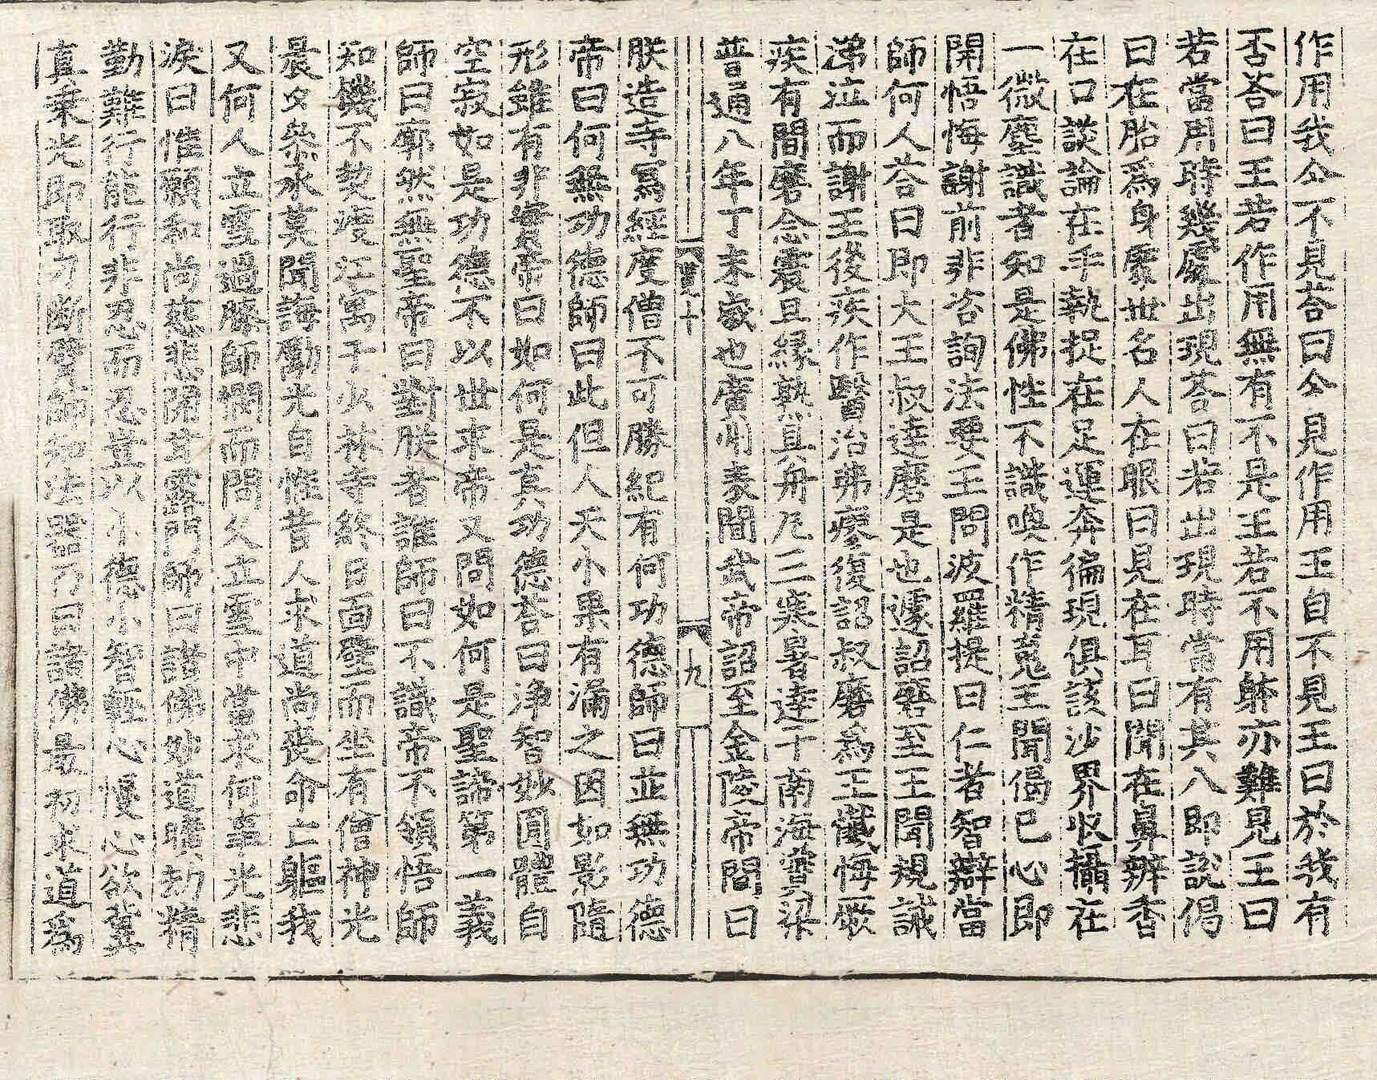 作用我今不見荅曰今見作用王自不見王曰於我有
否荅曰王若作用無有不是王若不用體亦難見王曰
若當用時幾處出現荅曰若出現時當有其八即說偈
曰在胎爲身處世名人在眼曰見在耳曰聞在鼻辨香
在口談論在手執捉在足運奔徧現俱該沙界收攝在
一微塵識者知是佛性不識喚作精䰟王聞偈已心即
開悟悔謝前非咨詢法要王問波羅提曰仁者智辯當
師何人荅曰即大王叔達磨是也遽詔磨至王聞規誡
涕泣而謝王後疾作醫治弗瘳復詔叔磨爲王懺悔厥
疾有間磨念震旦緣熟具舟凡三寒暑達于南海實梁
普通八年丁未歲也廣州表聞武帝詔至金陵帝問曰
九
朕造寺寫經度僧不可勝紀有何功德師曰並無功德
帝曰何無功德師曰此但人天小果有漏之因如影隨
形雖有非實帝曰如何是真功德荅曰淨智妙圓體自
空寂如是功德不以世求帝又問如何是聖諦第一義
師曰廓然無聖帝曰對朕者誰師曰不識帝不領悟師
知機不契痩江寓于少林寺終日面壁而坐有僧神光
晨夕叅承莫聞誨勵光自惟昔人求道尚喪命亡軀我
又何人立雪過膝師憫而問久立雪中當求何事光悲
淚曰惟願和尚慈悲開甘露門師曰諸佛妙道曠劫精
勤難行能行非忍而忍豈以小德小智輕心慢心欲冀
真乘光即取刀斷臂師知法器乃曰諸佛最初求道爲